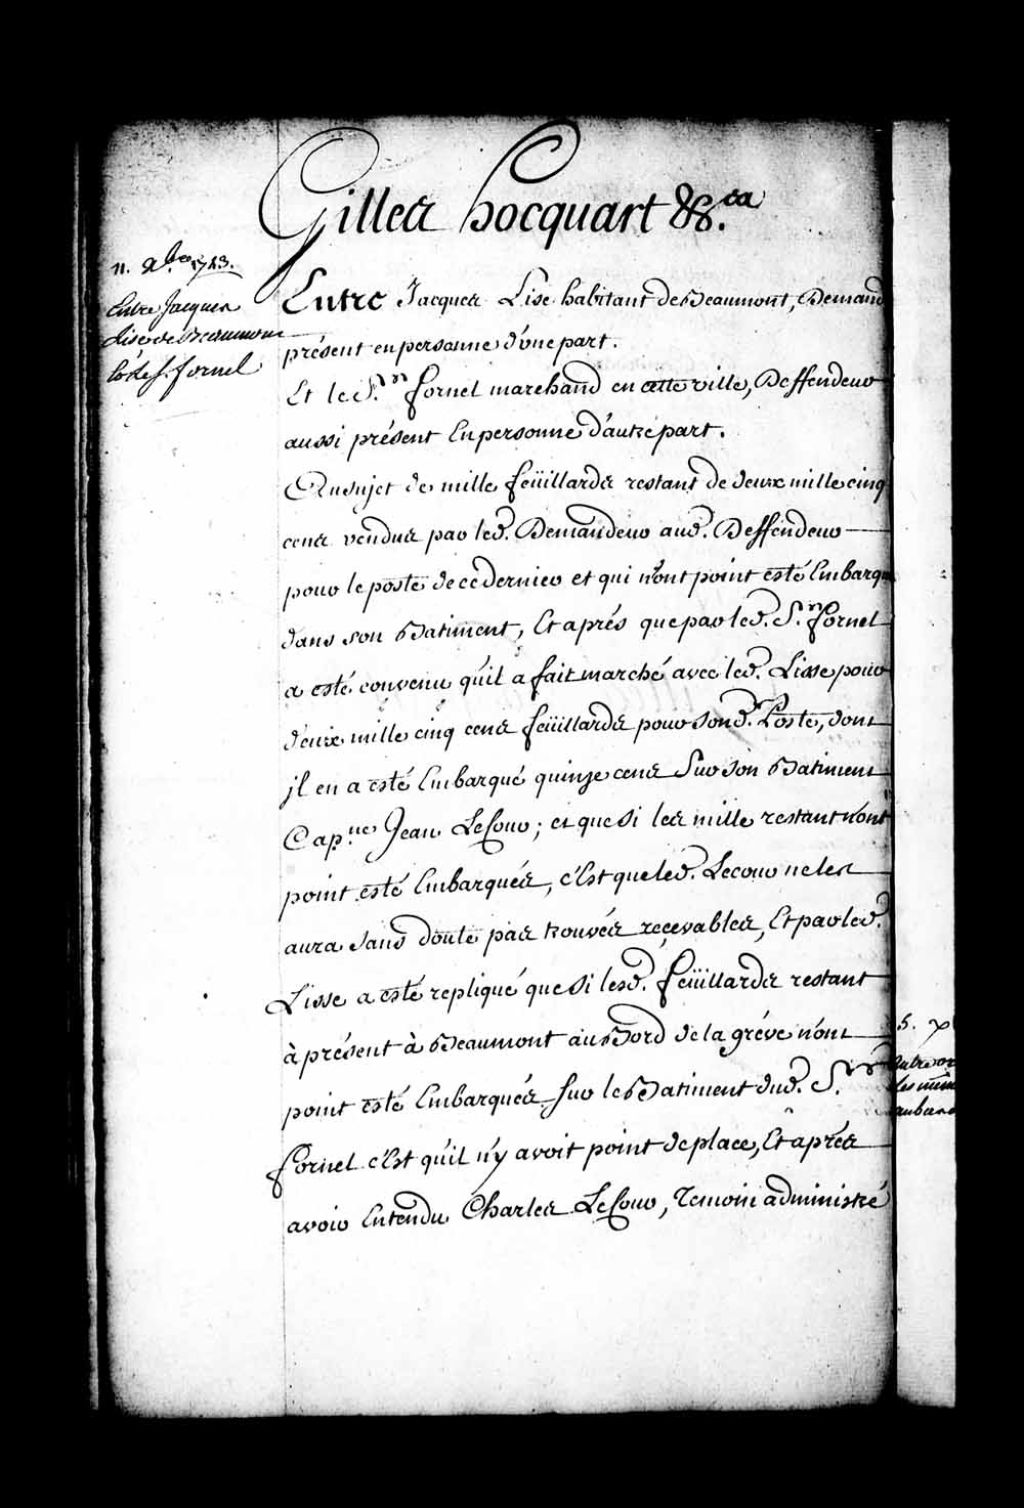 Gilles hocquart &c.ca
11. xbre 1743.
Entre Jacques
Lise de Beaumont
& le S. fornel
Entre Jacques Lise habitant de Beaumont, Demand
présent en personne d'une part.
Et le S.r fornel marchand en cette ville, Deffendeur
aussi présent En personne d'autre part.
Au sujet de mille feüillards restant de deux mille cinq
cens vendus par led. Demandeur aud. Deffendeur
pour le poste de ce dernier et qui n'ont point esté Embarqu
dans son Batiment, Et aprés que par led. S.r fornel
a esté convenu qu'il a fait marché avec led. Lisse pour
deux mille cinq cens feüillards pour sond. Poste, dont
jl en a esté Embarqué quinze cens Sur son Batiment
Cap.ne Jean LeCour; et que si les mille restant n'ont
point esté Embarqués, c'Est que led. Lecour ne les
aura sans doute pas trouvés recevables, Et par led.
Lisse a esté repliqué que si lesd. feüillards restant
à présent à Beaumont au Bord de la gréve n'ont
point esté Embarqués sur le Batiment dud. S.r
fornel c'Est qu'il n'y avoit point de place, Et aprés
avoir Entendu Charles LeCour, Temoin administré
5. x
Entre
les